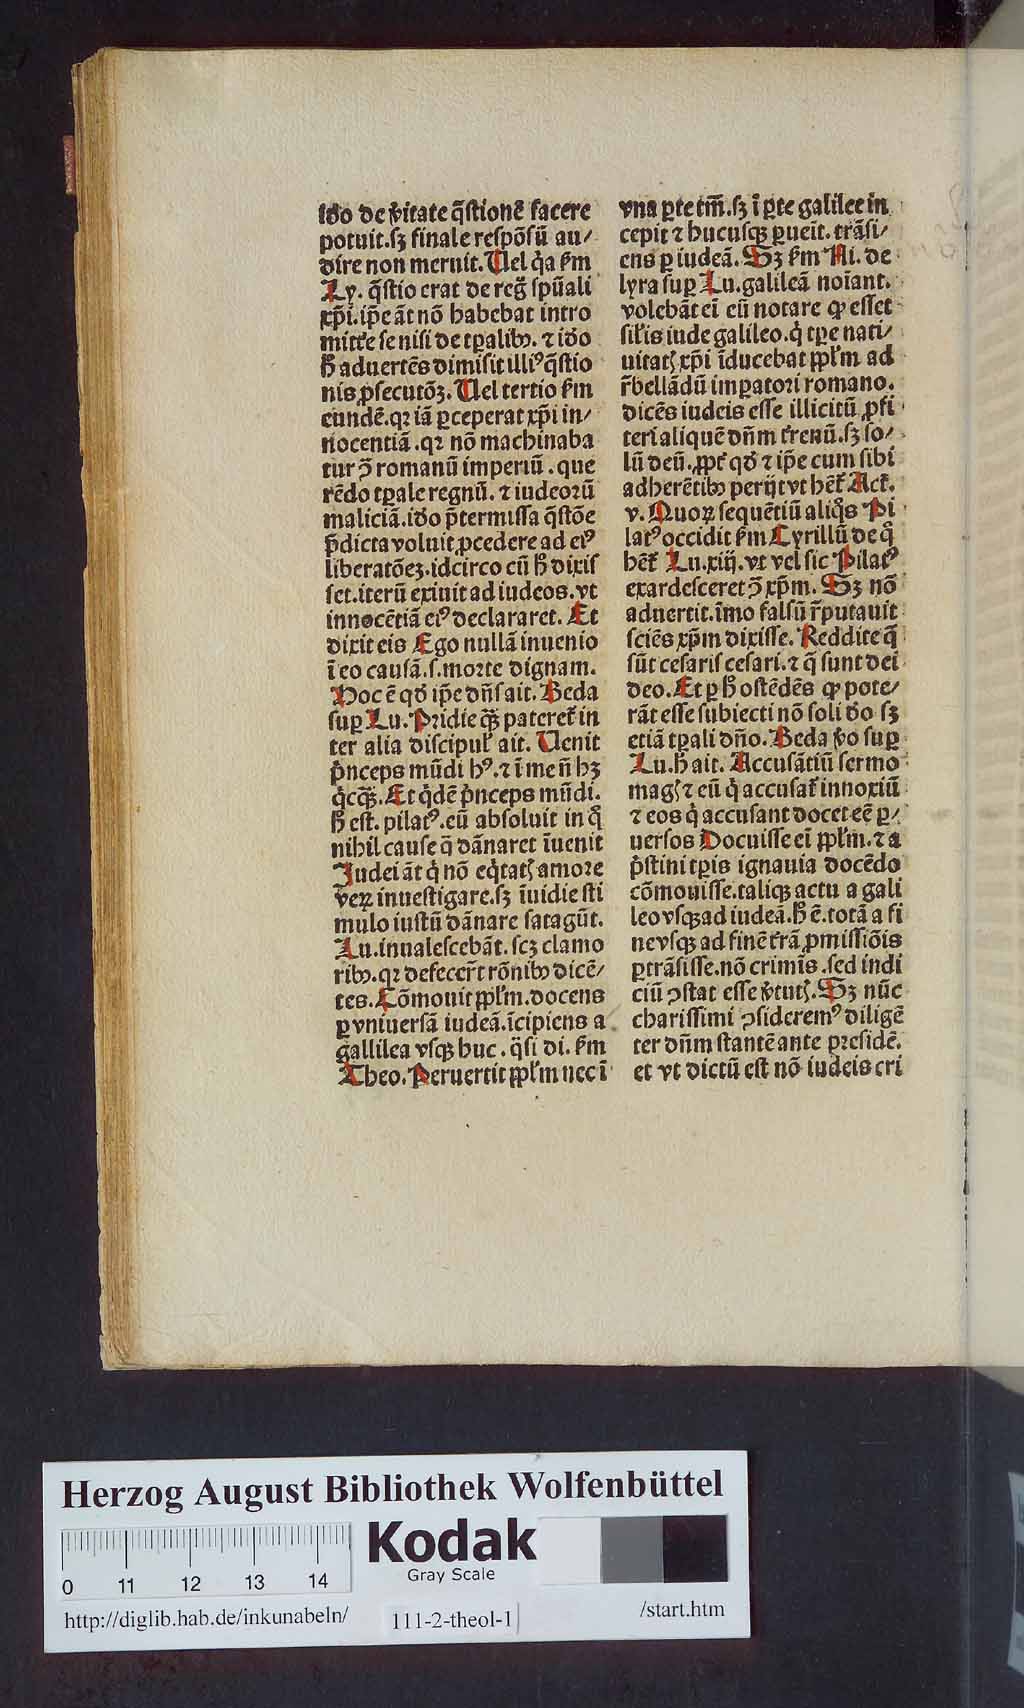 ido de v̓itate q̄stionē facere
potuit. sꝫ finale respōsū au⸗
dire non meruit. Uel q̓a ẜm
Ly. q̄stio erat de regͦ spūali
xp̄i. ip̄e āt nō habebat intro
mitt̓e se nisi de tꝑalibꝰ. ⁊ ido
h̄ aduertēs dimisit illiꝰ q̄stio
nis ꝓsecutōꝫ. Uel tertio ẜm
eundē. qꝛ iā ꝑceperat xp̄i in⸗
nocentiā. qꝛ nō machinaba
tur ↄ̄ romanū imperiū. que
rēdo tꝑale regnū. ⁊ iudeorū
maliciā. ido p̄termissa q̄stōe
p̄dicta voluit ꝓcedere ad eiꝰ
liberatōeꝫ. idcirco cū h̄ dixis
set. iterū exiuit ad iudeos. vt
innocētiā eiꝰ declararet. Et
dixit eis Ego nullā inuenio
ī eo causā. s. morte dignam.
Hoc ē qd̓ ip̄e dn̄s ait. Beda
sup̄ Lu. Pridie qꝫ̄ pateret̓ in
ter alia discipul̓ ait. Uenit
p̓nceps mūdi hꝰ. ⁊ ī me n̄ hꝫ
q̓cqꝫ̄. Et q̓dē p̓nceps mūdi.
h̄ est. pilatꝰ. eū absoluit in qͦ
nihil cause q̄ dānaret īuenit
Judei āt q̓ nō eq̓tatꝭ amore
veꝝ inuestigare. sꝫ īuidie sti
mulo iustū dānare satagūt.
Lu. inualescebāt. scꝫ clamo
ribꝰ. qꝛ defecer̄t rōnibꝰ dicē⸗
tes. Cōmouit pp̄l̓m. docens
ꝑ vniuersā iudeā. īcipiens a
gallilea vsqꝫ huc. q̄si di. ẜm
Theo. Peruertit pp̄l̓m nec ī
vna ꝑte tm̄. sꝫ ī ꝑte galilee in
cepit ⁊ hucusqꝫ ꝑueīt. trāsi⸗
ens ꝑ iudeā. Sꝫ ẜm Ni. de
lyra sup̄ Lu. galileā noīant.
volebāt eī eū notare ꝙ esset
sil̓is iude galileo. q̓ tꝑe nati⸗
uitatꝭ xp̄i īducebat pp̄l̓m ad
r̄bellādū imꝑatori romano.
dicēs iudeis esse illicitū ꝓfi
teri aliquē dn̄m t̓renū. sꝫ so⸗
lū deū. ꝓpt̓ qd̓ ⁊ ip̄e cum sibi
adherētibꝰ perijt vt het̓ Act̓.
v. Quoꝝ sequētiū aliq̄s Pi
latꝰ occidit ẜm Cyrillū de qͦ
het̓ Lu. xiij. vt vel sic Pilatꝰ
exardesceret ↄ̄ xp̄m. Sꝫ nō
aduertit. īmo falsū r̄putauit
sciēs xp̄m dixisse. Reddite q̄
sūt cesaris cesari. ⁊ q̄ sunt dei
deo. Et ꝑ h̄ ostēdēs ꝙ pote⸗
rāt esse subiecti nō soli do sꝫ
etiā tꝑali dn̄o. Beda v̓o sup̄
Lu. h̄ ait. Accusātiū sermo
magꝭ ⁊ eū q̓ accusat̓ innoxiū
⁊ eos q̓ accusant docet eē ꝑ⸗
uersos Docuisse eī pp̄l̓m. ⁊ a
p̓stini tꝑis ignauia docēdo
cōmouisse. taliqꝫ actu a gali
leo vsqꝫ ad iudeā. h̄ ē. totā a fi
ne vsqꝫ ad finē t̓rā ꝓmissiōis
ꝑtrāsisse. nō crimīs. sed indi
ciū ↄstat esse v̓tutꝭ. Sꝫ nūc
charissimi ↄsideremꝰ diligē
ter dn̄m stantē ante presidē.
et vt dictū est nō iudeis cri
Herzog August Bibliothek Wolfenbüttel
Kodak
Gray Scale
0 11 12 13 14
http://diglib.hab.de/inkunabeln/ 111-2-theol-1 /start.htm